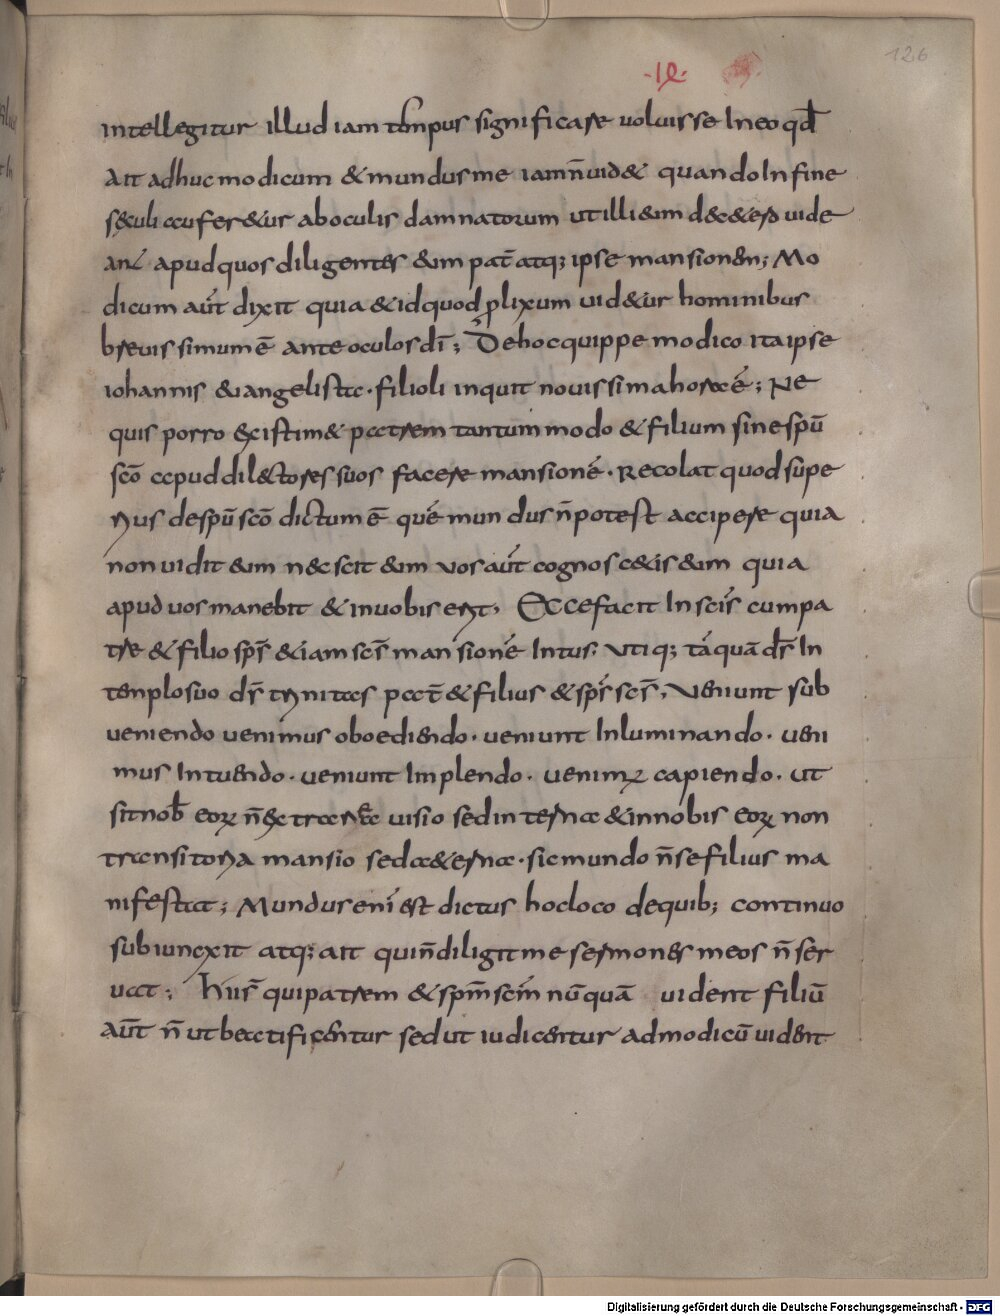 ·IQ·
126
intellegitur illud iam tempus significare voluisse In eo qd̄
Ait adhuc modicum & mundus me iam n̄ uid& quando In fine
s&culi auferetur ab oculis damnatorum ut illi eum d& & esd uide
ant apud quos diligentes eum pat̄ atq; ipse mansionem; Mo
dicum aut̄ dixit quia & id quod ꝓlixum uid&ur hominibus
breuissimum ē ante oculos dī; De hoc quippe modico ita ipse
iohannis euangelista· filioli inquit nouissima hora ē; Ne
quis porro existim& patrem tantummodo & filium sine spū
sc̄o apud dil&tores suos facere mansionē· Recolat quod supe
rius de spū sc̄o dictum ē quē mundus n̄ potest accipere quia
non uidit eum nec scit eum vos aut̄ cognosc&is eum quia
apud uos manebit & in uobis erit, Ecce facit In sc̄is cum pa
tre & filio sps̄ &iam sc̄s mansionē Intus· Utiq; tāquā ds̄ In
templo suo ds̄ trinitas pat̄ & filius & sps̄ sc̄s, Veniunt sub
ueniendo uenimus oboediendo· ueniunt Inluminando· ueni
mus Intuendo· ueniunt Implendo· uenimꝰ capiendo· ut
sit nob̄ eoꝝ n̄ extranea uisio sed interna & in nobis eoꝝ non
transitoria mansio sed aeterna· sic mundo n̄ se filius ma
nifestat; Mundus enī est dictus hoc loco de quib; continuo
subiuncxit atq; ait qui n̄ diligit me sermones meos n̄ ser
uat; hii s̄ qui patrem & spm̄ sc̄m nūquā uident filiū
aut̄ n̄ ut beatificentur sed ut iudicentur ad modicū uident
Digitalisierung gefördert durch die Deutsche Forschungsgemeinschaft - DFG